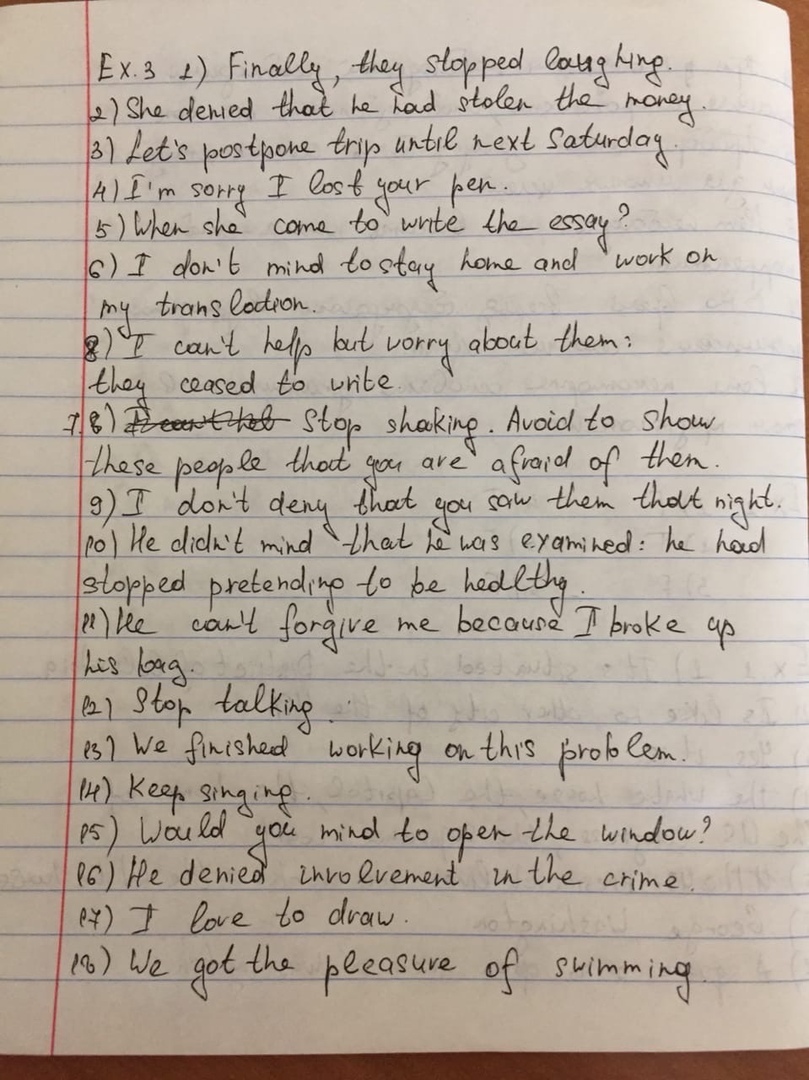 Ex.3 1) Finally, they stopped laughing.
2) She denied that he had stolen the money.
3) Let's postpone trip until next Saturday.
4) I'm sorry I lost your pen.
5) When she come to write the essay?
6) I don't mind to stay home and work on
my translation.
8) I can't help but worry about them:
they ceased to write.
7.8) Stop shaking. Avoid to show
these people that you are afraid of them.
9) I don't deny that you saw them that night.
10) He didn't mind that he was examined: he had
stopped pretending to be healthy.
11) He can't forgive me because I broke up
his bag.
12) Stop talking.
13) We finished working on this problem.
14) Keep singing.
15) Would you mind to open the window?
16) He denied involvement in the crime.
17) I love to draw.
18) We got the pleasure of swimming.